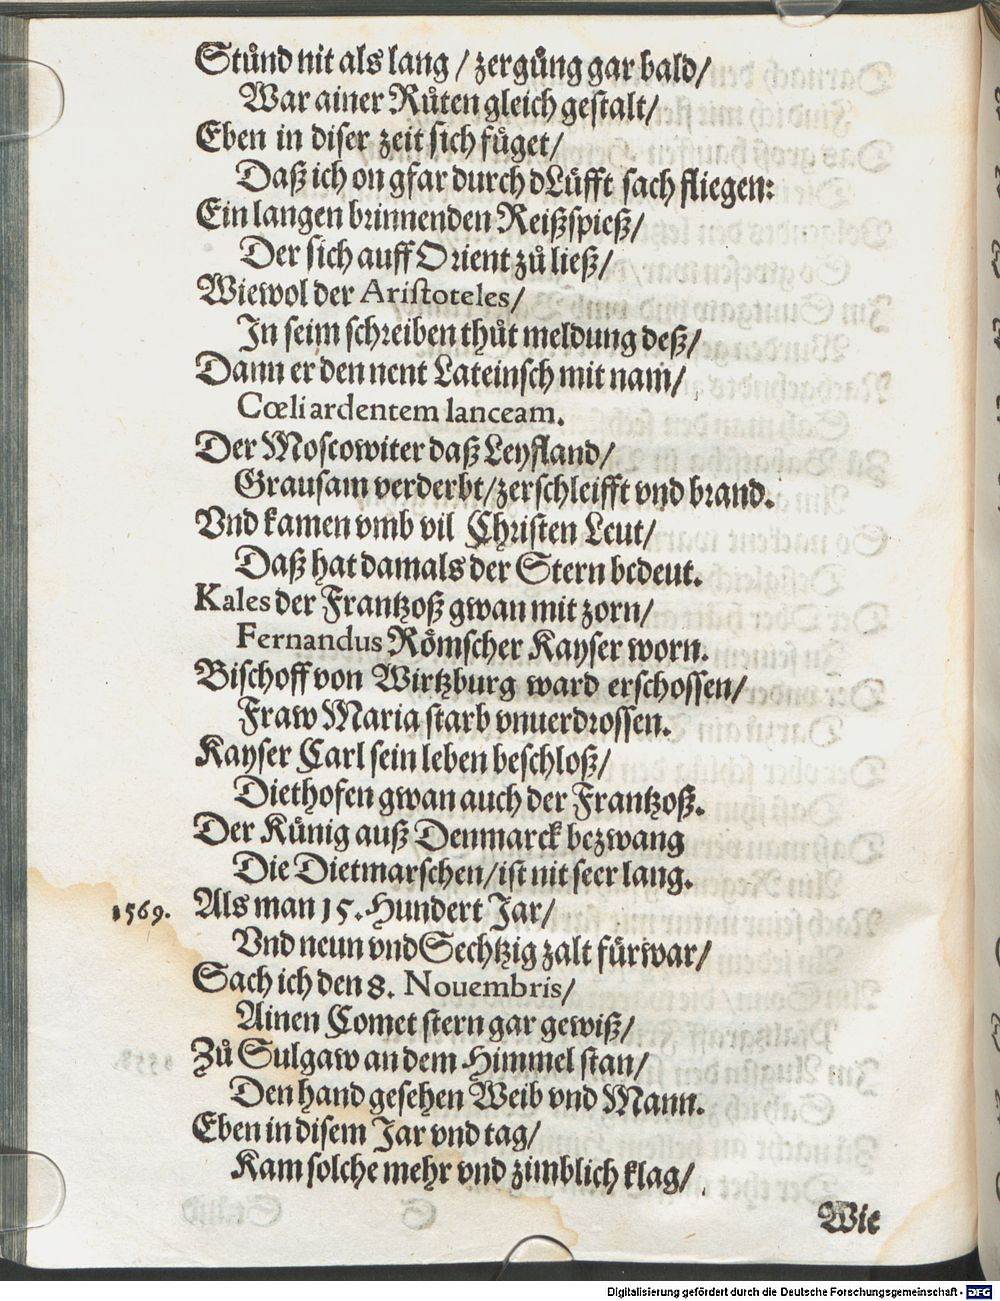 Stuͤnd nit als lang / zerguͤng gar bald/
War ainer Ruͤten gleich gestalt/
Eben in diser zeit sich fuͤget/
Daß ich on gfar durch dLüfft sach fliegen:
Ein langen brinnenden Reißspieß/
Der sich auff Orient zuͦ ließ/
Wiewol der Aristoteles/
In seim schreiben thuͦt meldung deß/
Dann er den nent Lateinsch mit nam̄/
Cœli ardentem lanceam.
Der Moscowiter daß Leyfland/
Grausam verderbt/zerschleifft vnd brand.
Vnd kamen vmb vil Christen Leut/
Daß hat damals der Stern bedeut.
Kales der Frantzoß gwan mit zorn/
Fernandus Roͤmscher Kayser worn.
Bischoff von Wirtzburg ward erschossen/
Fraw Maria starb vnuerdrossen.
Kayser Carl sein leben beschloß/
Diethofen gwan auch der Frantzoß.
Der Künig auß Denmarck bezwang
Die Dietmarschen/ist nit seer lang.
1569. Als man 15. Hundert Jar/
Vnd neun vnd Sechtzig zalt fürwar/
Sach ich den 8. Nouembris/
Ainen Comet stern gar gewiß/
Zuͦ Sulgaw an dem Himmel stan/
Den hand gesehen Weib vnd Mann.
Eben in disem Jar vnd tag/
Kam solche mehr vnd zimblich klag/
Wie
Digitalisierung gefördert durch die Deutsche Forschungsgemeinschaft - DFG